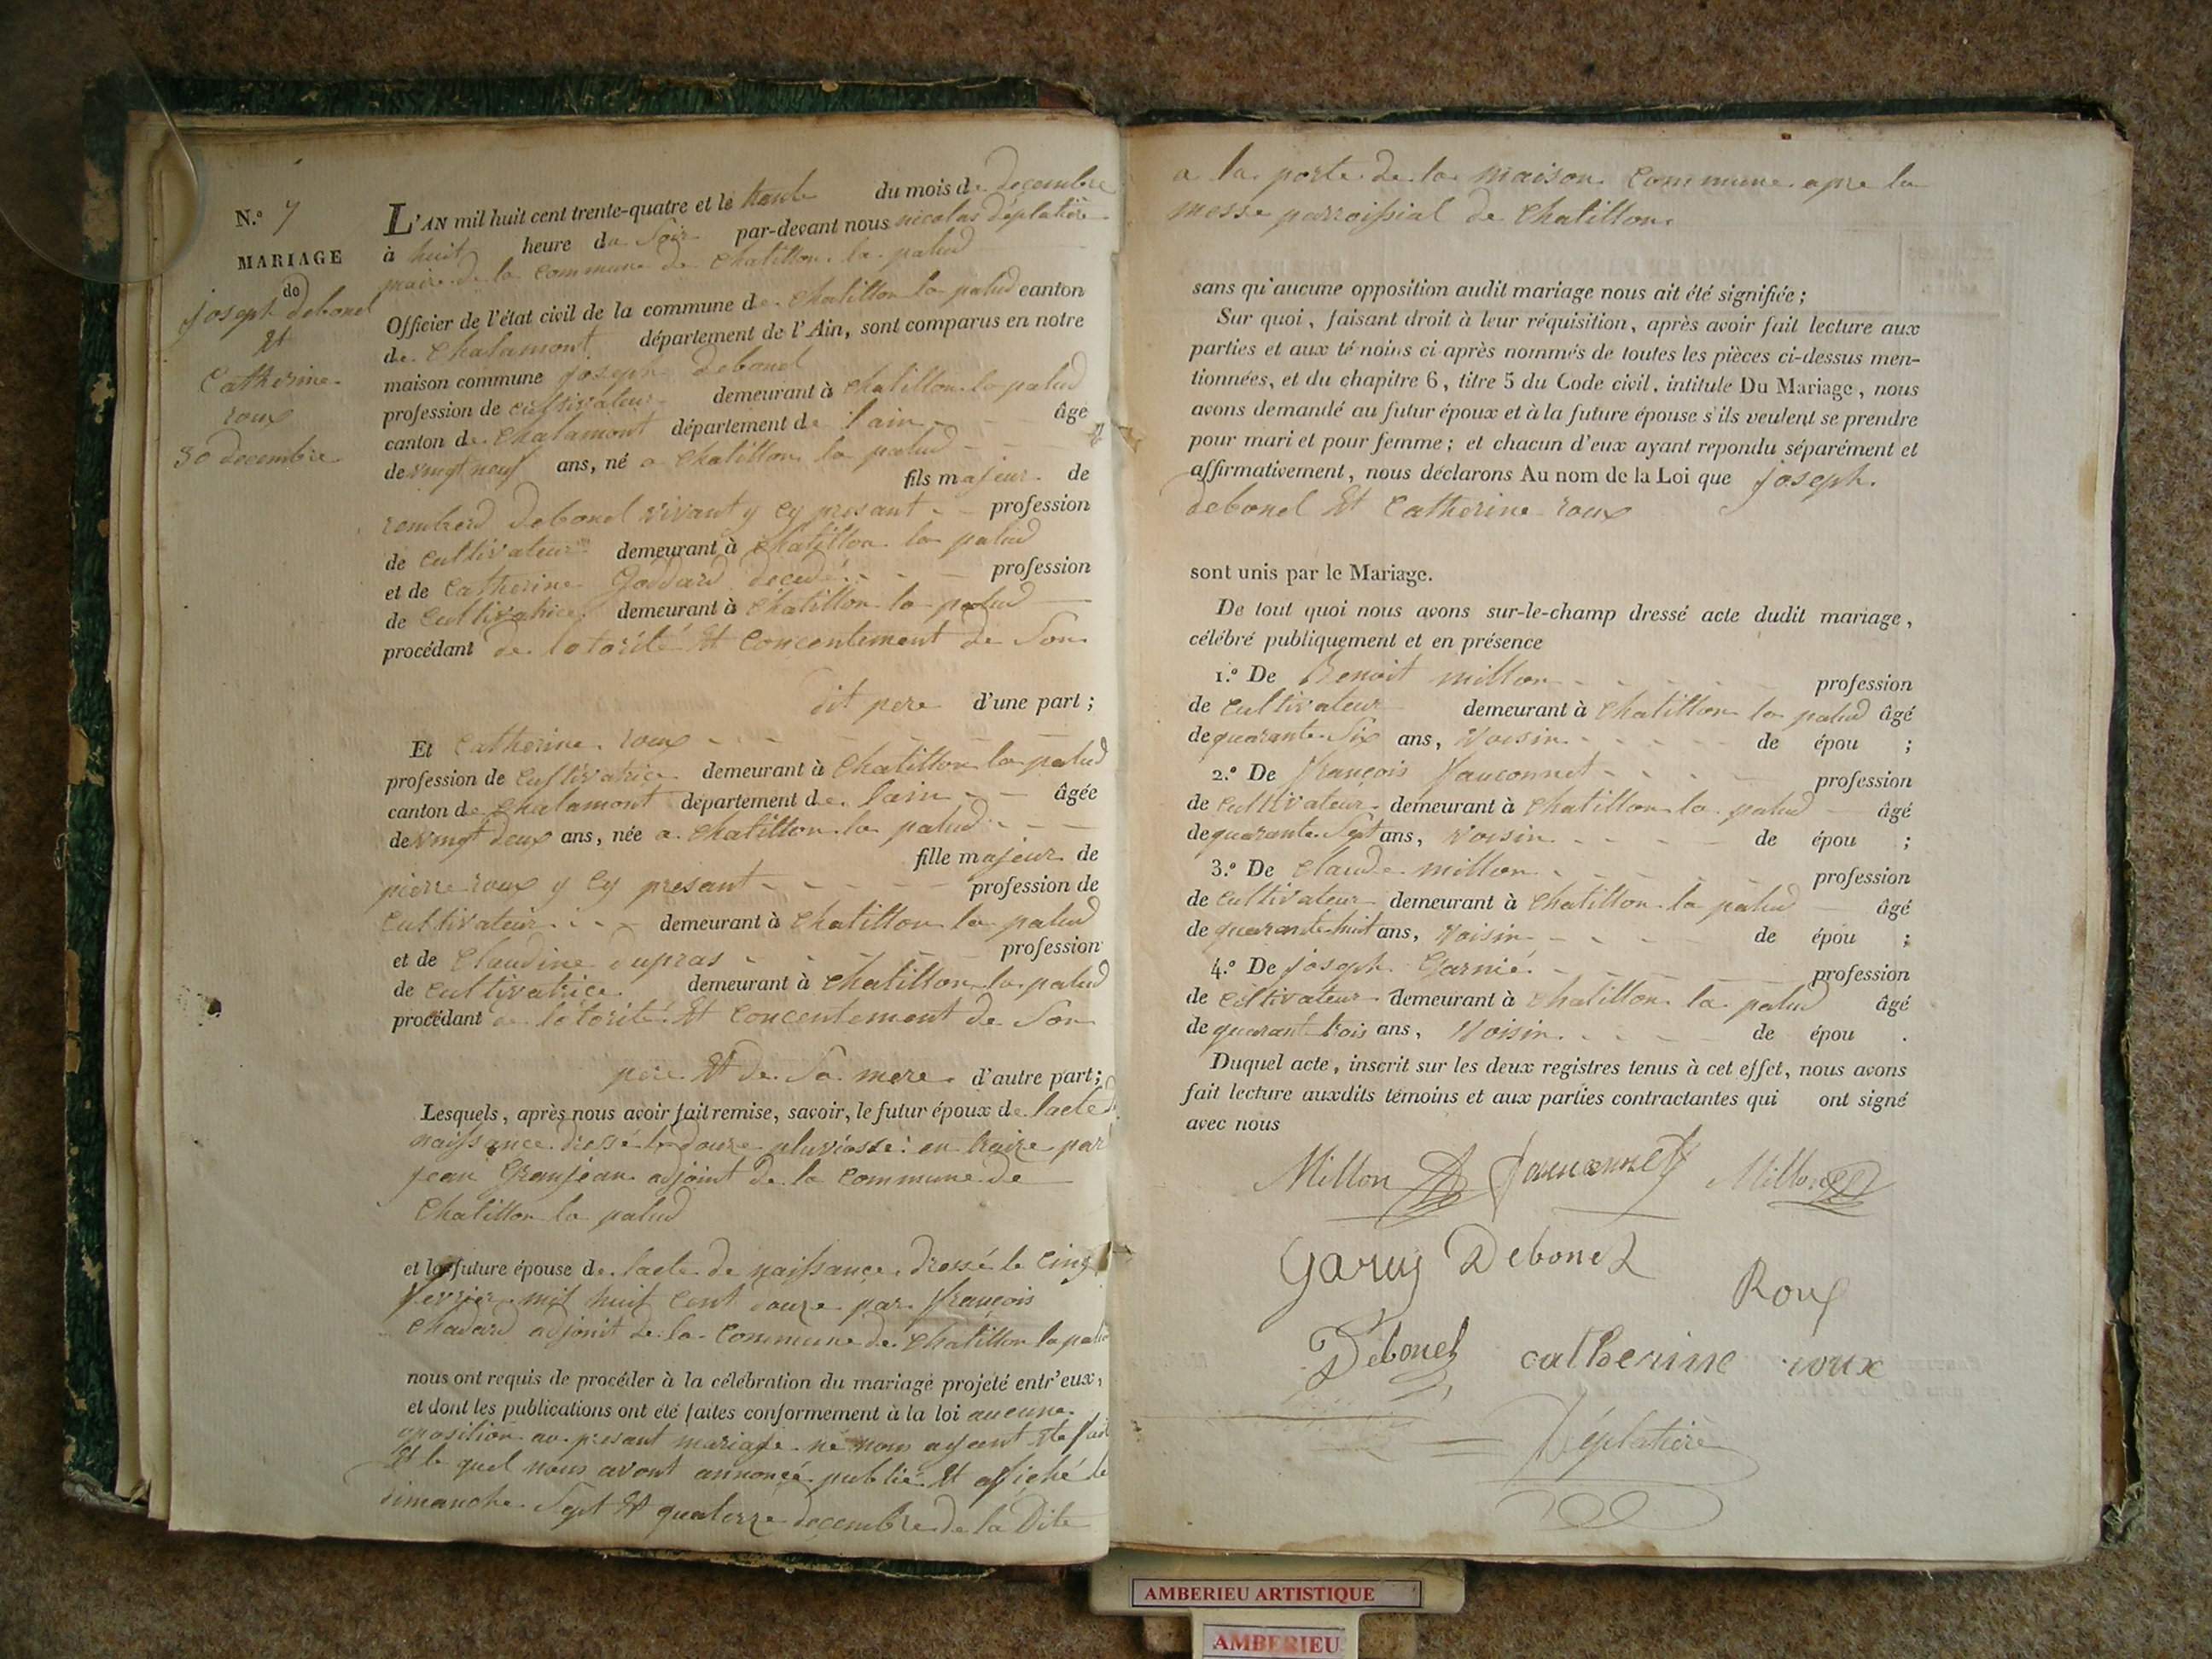 N.º 7
MARIAGE
de
joseph debonel
Et
Catherine
roux
30 decembre
L'AN mil huit cent trente-quatre et le trente du mois de decembre
à huit heure du Soir par-devant nous nicolas déplatière
maire de la commune de chatillon la palud
Officier de l'état civil de la commune de chatillon la palud canton
de Chalamont département de l'Ain, sont comparus en notre
maison commune joseph debonel
profession de cultivateur demeurant à chatillon la palud
canton de Chalamont département de l'ain âgé
de vingt neuf ans, né a chatillon la palud
fils majeur de
debonel vivant y cy presant profession
de cultivateur demeurant à chatillon la palud
et de Catherine Goddard decedé profession
de cultivatrice demeurant à chatillon la palud
procédant de lotorité Et concentement de Son
dit pere d'une part ;
Et Catherine roux
profession de cultivatrice demeurant à chatillon la palud
canton de chalamont département de lain âgée
de vingt deux ans, née a chatillon la palud
fille majeur de
pierre roux y cy presant profession de
cultivateur demeurant à chatillon la palud
et de Claudine dupras profession
de cultivatrice demeurant à chatillon la palud
procédant de lotorité Et concentement de Son
père Et de Sa mere d'autre part ;
Lesquels, après nous avoir fait remise, savoir, le futur époux de lacte de
naissance dressé le douze pluviosse an treize par
jean Granjean adjoint de la commune de
Chatillon la palud
et la future épouse de lacte de naissance dressé le cinq
fevrier mil huit cent douze par françois
chadard adjoint de la commune de chatillon la palud
nous ont requis de procéder à la célébration du mariage projeté entr'eux,
et dont les publications ont été faites conformement à la loi aucune
oposition au presant mariage ne nous ayant ete fait
Et le quel nous avont annonçé publié Et afiché le
dimanche Sept Et quatorze decembre de la Dite
a la porte de la maison commune apre la
messe parroissial de chatillon
sans qu'aucune opposition audit mariage nous ait été signifiée ;
Sur quoi, faisant droit à leur réquisition, après avoir fait lecture aux
parties et aux témoins ci-après nommés de toutes les pièces ci-dessus men-
tionnées, et du chapitre 6, titre 5 du Code civil, intitule Du Mariage, nous
avons demandé au futur époux et à la future épouse s'ils veulent se prendre
pour mari et pour femme ; et chacun d'eux ayant repondu séparément et
affirmativement, nous déclarons Au nom de la Loi que joseph
debonel Et Catherine roux
sont unis par le Mariage.
De tout quoi nous avons sur-le-champ dressé acte dudit mariage,
célébré publiquement et en présence
1.º De Benoit millon profession
de cultivateur demeurant à chatillon la palud âgé
de quarante Six ans, Voisin de épou ;
2.º De françois fauconnet profession
de cultivateur demeurant à chatillon la palud âgé
de quarante Sept ans, Voisin de épou ;
3.º De Claude millon profession
de cultivateur demeurant à chatillon la palud âgé
de quarante huit ans, Voisin de épou ;
4.º De joseph Garnié profession
de cultivateur demeurant à chatillon la palud âgé
de quarant trois ans, Voisin de épou .
Duquel acte, inscrit sur les deux registres tenus à cet effet, nous avons
fait lecture auxdits témoins et aux parties contractantes qui ont signé
avec nous
Millon fauconnet Millon
Debonel
Roux
Debonel catherine roux
Déplatière
AMBERIEU ARTISTIQUE
AMBERIEU